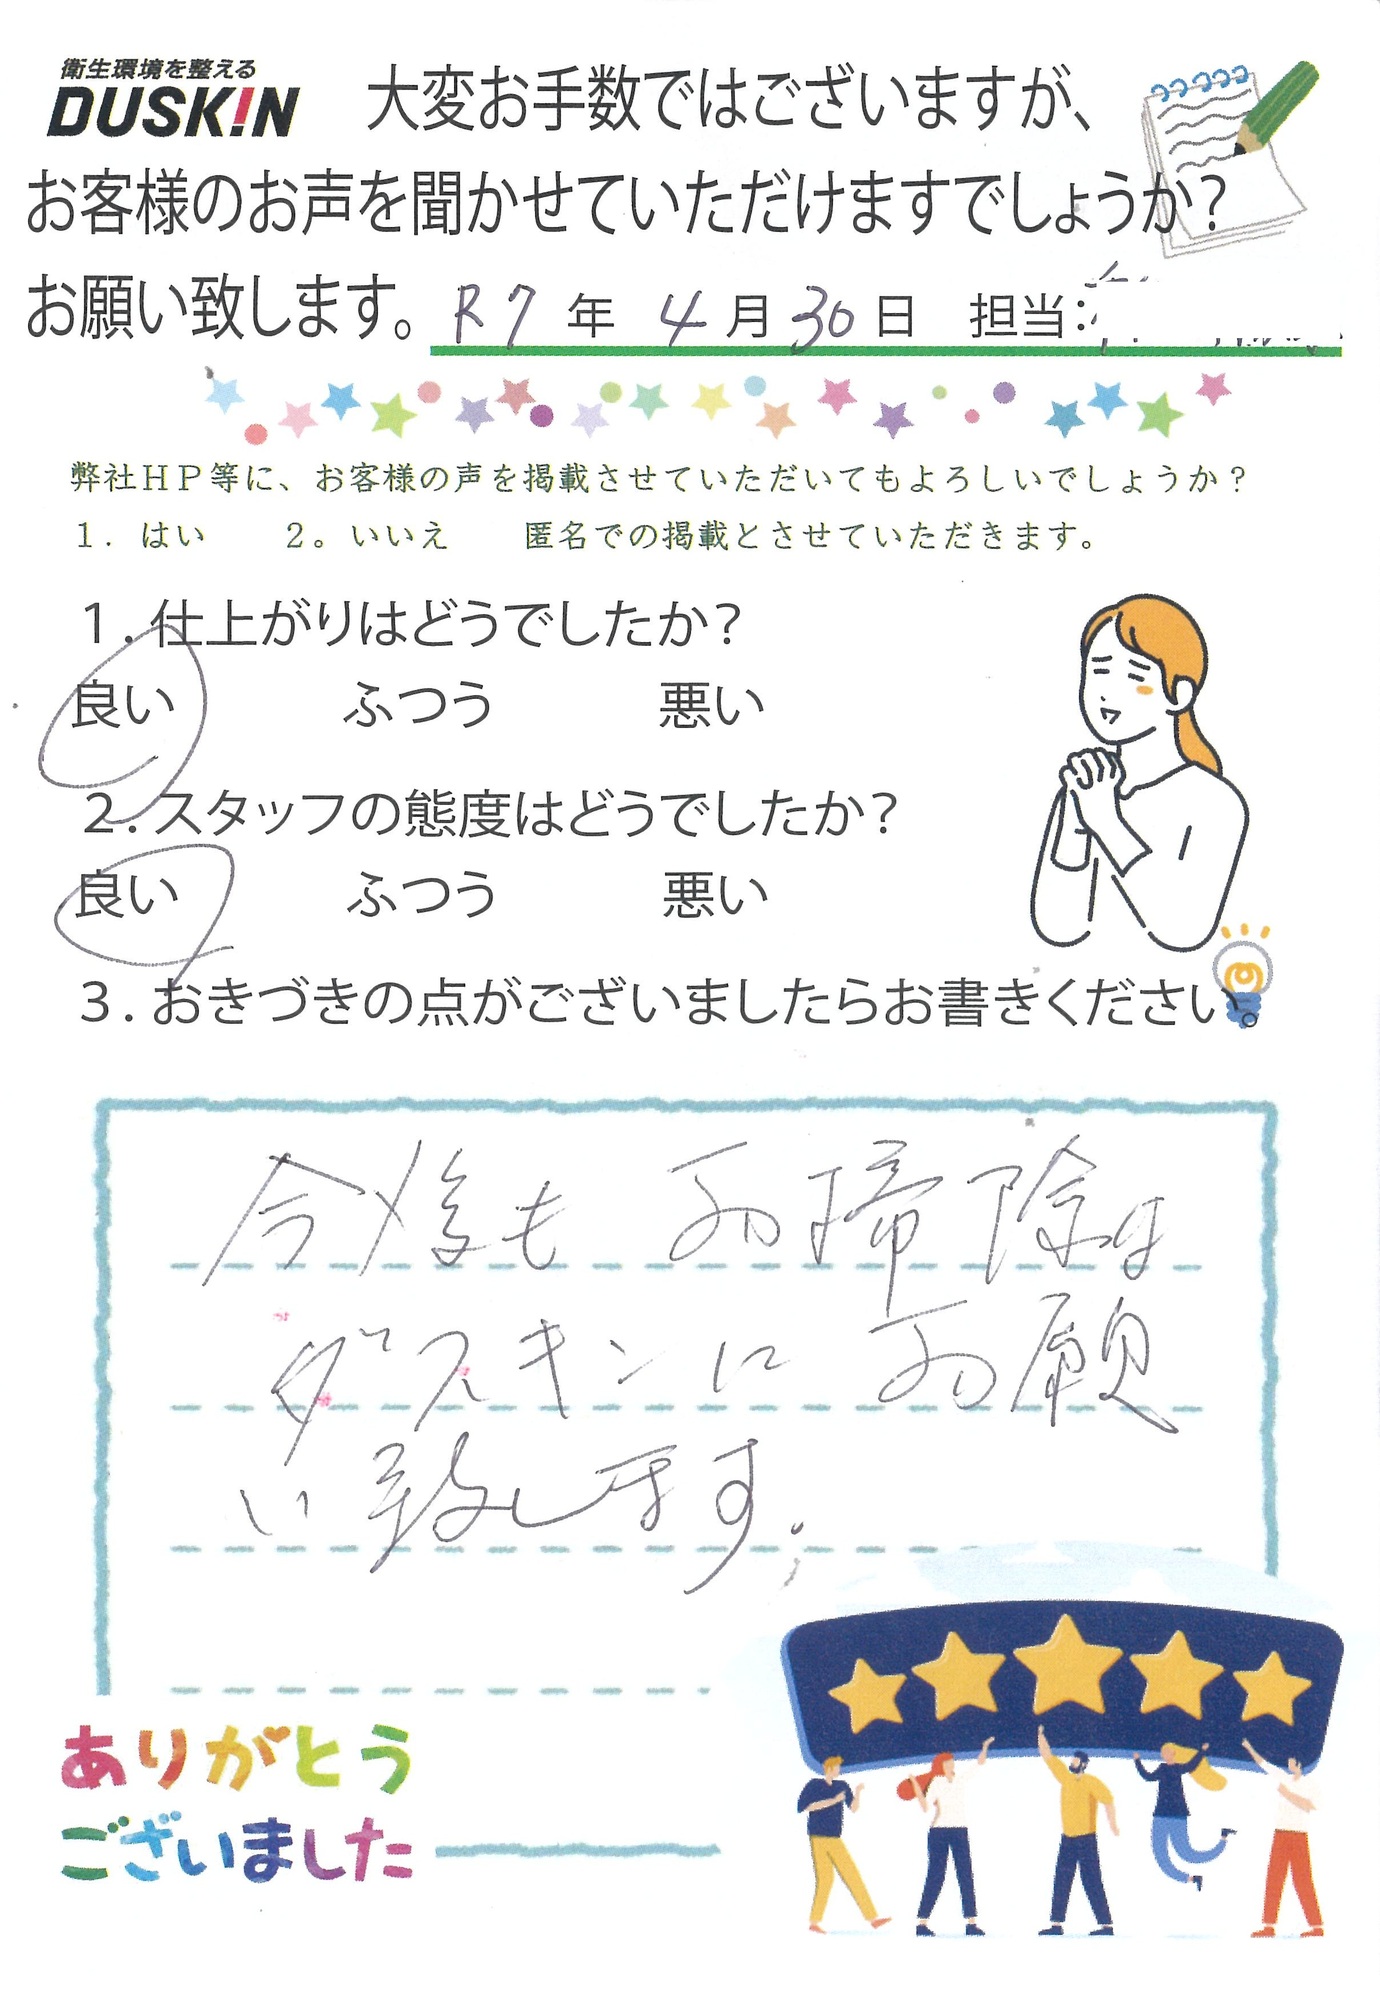 衛生環境を整える
DUSKIN
大変お手数ではございますが、
お客様のお声を聞かせていただけますでしょうか？
お願い致します。 R7年 4月30日 担当：
弊社ＨＰ等に、お客様の声を掲載させていただいてもよろしいでしょうか？
１．はい ２。いいえ 匿名での掲載とさせていただきます。
１．仕上がりはどうでしたか？
良い ふつう 悪い
２．スタッフの態度はどうでしたか？
良い ふつう 悪い
３．おきづきの点がございましたらお書きください。
今後も お掃除は
ダスキンに お願
い致します。
ありがとう
ございました